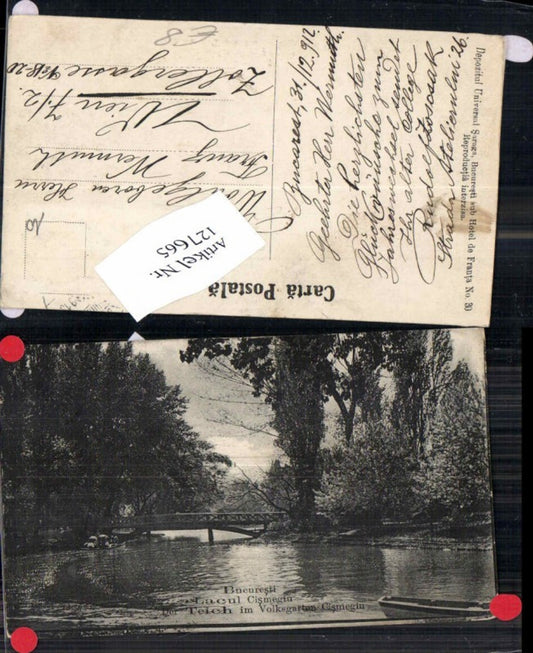 Depozitul Universul Şaraga, Bucureşti sub Hotel de Franţa No. 30
Reproducţia interzisă.
Cartă Postală
Bucarest, 31./12. 912.
Geehrter Herr Wermuth.
Die herzlichsten
Glückwünsche zum
Jahreswechsel sendet
Ihr alter College
Rudolf
Strada Italienilui 26.
Wohlgeboren Herrn
Franz Wermuth
Wien 7/2.
Zollergasse
€8
Artikel Nr.
127605
Bucureşti
Lacul Cişmegiu
Der Teich im Volksgarten Cişmegiu